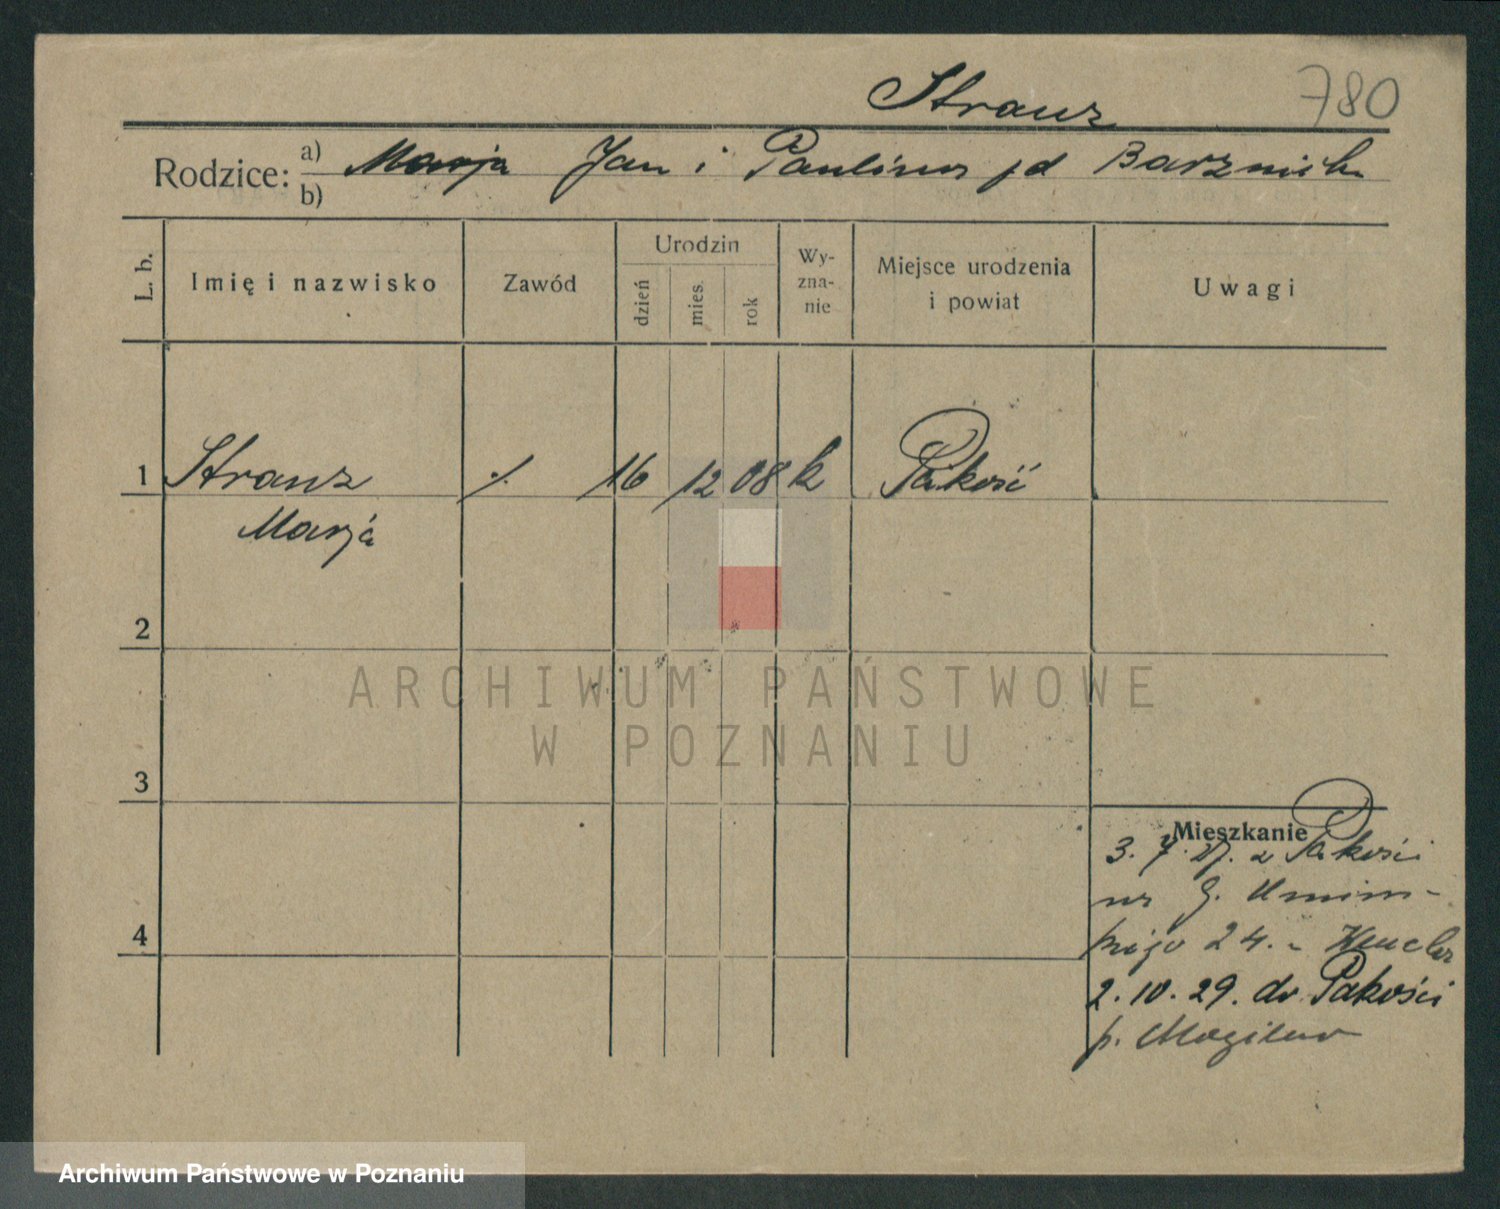 780
Stranz
Rodzice: a) Marja Jan i Paulina pd Barznick
b)
L. b.
Imię i nazwisko
Zawód
Urodzin
dzień
mies.
rok
Wy-
zna-
nie
Miejsce urodzenia
i powiat
Uwagi
1 Stranz ./. 16 12 08 k Pakość
Marja
2
ARCHIWUM PAŃSTWOWE
W POZNANIU
3
4
Mieszkanie
3. 7. z Pakości
na G.
24. -
2. 10. 29. do Pakości
p. Mogilno
Archiwum Państwowe w Poznaniu